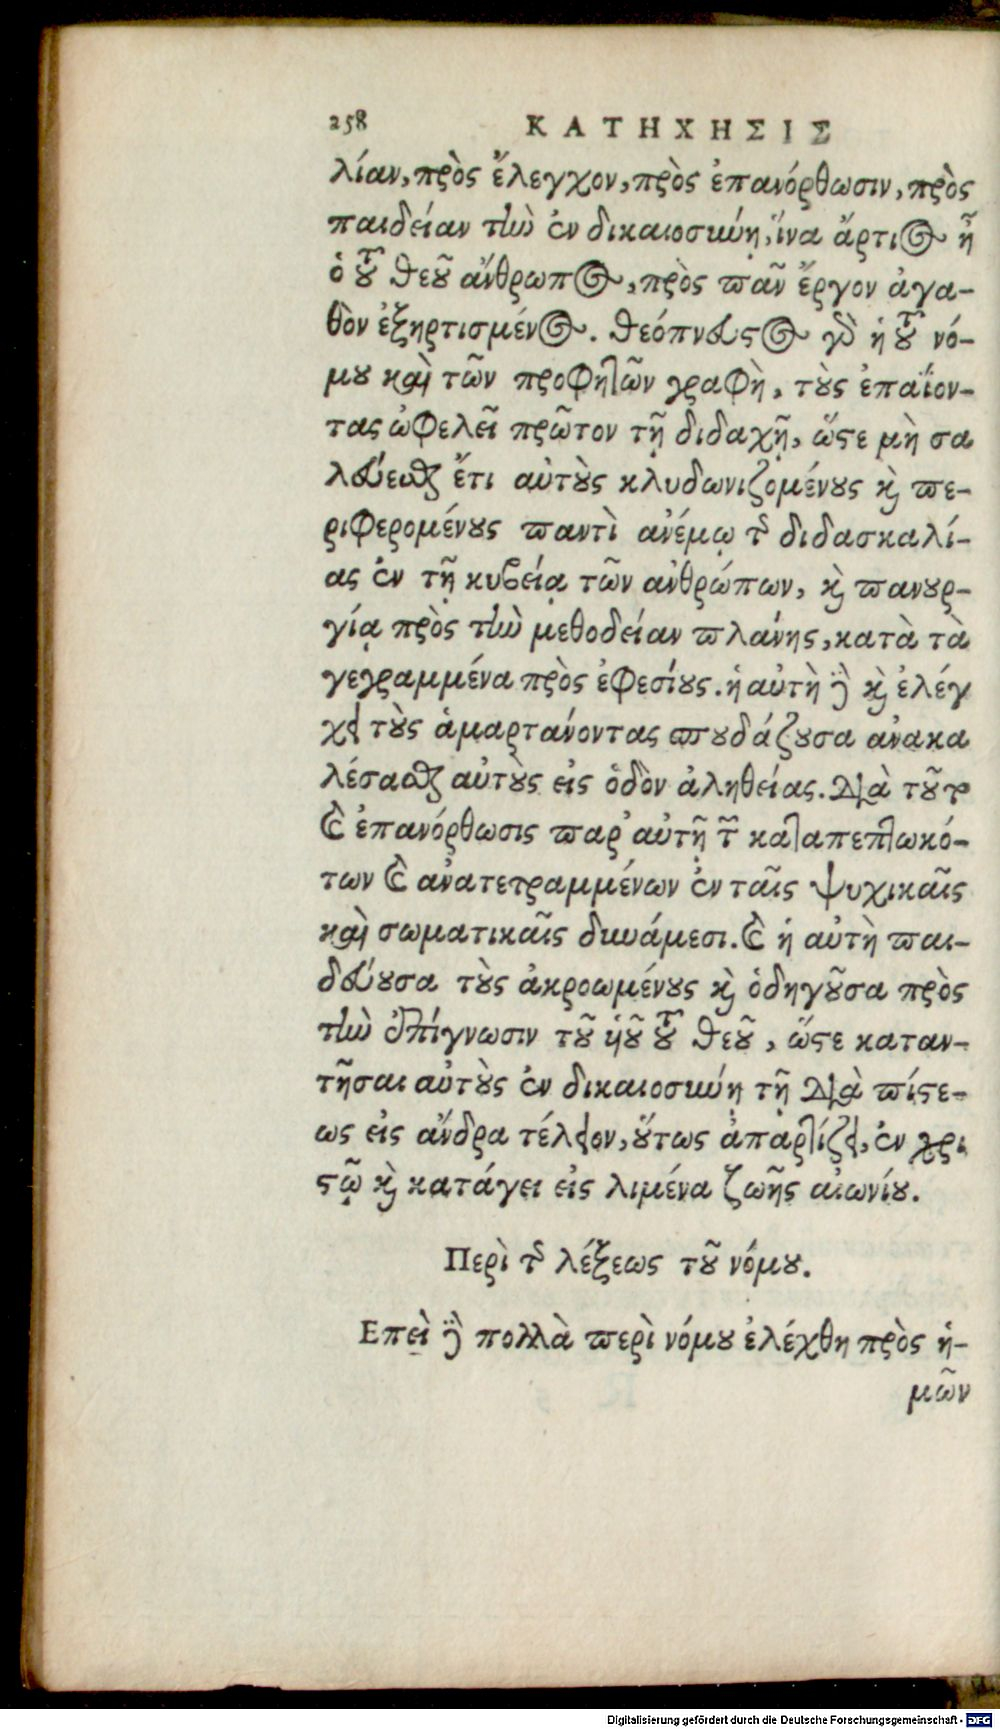 258 ΚΑΤΗΧΗΣΙΣ
λίαν, πρὸς ἔλεγχον, πρὸς ἐπανόρθωσιν, πρὸς
παιδείαν τὴν ἐν δικαιοσύνῃ, ἵνα ἄρτιος ᾖ
ὁ τοῦ θεοῦ ἄνθρωπος, πρὸς πᾶν ἔργον ἀγα-
θὸν ἐξηρτισμένος. θεόπνευστος γὰρ ἡ τοῦ νό-
μου καὶ τῶν προφητῶν γραφὴ, τοὺς ἐπαΐον-
τας ὠφελεῖ πρῶτον τῇ διδαχῇ, ὥστε μὴ σα
λεύεσθαι ἔτι αὐτοὺς κλυδωνιζομένους καὶ πε-
ριφερομένους παντὶ ἀνέμῳ τῆς διδασκαλί-
ας ἐν τῇ κυβείᾳ τῶν ἀνθρώπων, καὶ πανουρ-
γίᾳ πρὸς τὴν μεθοδείαν πλάνης, κατὰ τὰ
γεγραμμένα πρὸς ἐφεσίους. ἡ αὐτὴ δὲ καὶ ἐλέγ
χει τοὺς ἁμαρτάνοντας σπουδάζουσα ἀνακα
λέσασθαι αὐτοὺς εἰς ὁδὸν ἀληθείας. διὰ τοῦτο
καὶ ἐπανόρθωσις παρ᾽ αὐτῇ τῶν καταπεπτωκό-
των καὶ ἀνατετραμμένων ἐν ταῖς ψυχικαῖς
καὶ σωματικαῖς δυνάμεσι. καὶ ἡ αὐτὴ παι-
δεύουσα τοὺς ἀκροωμένους καὶ ὁδηγοῦσα πρὸς
τὴν ἐπίγνωσιν τοῦ υἱοῦ τοῦ θεοῦ, ὥστε καταν-
τῆσαι αὐτοὺς ἐν δικαιοσύνῃ τῇ διὰ πίστε-
ως εἰς ἄνδρα τέλειον, οὕτως ἀπαρτίζει, ἐν χρι
στῷ καὶ κατάγει εἰς λιμένα ζωῆς αἰωνίου.
Περὶ τῆς λέξεως τοῦ νόμου.
Επεὶ δὲ πολλὰ περὶ νόμου ἐλέχθη πρὸς ἡ-
μῶν
Digitalisierung gefördert durch die Deutsche Forschungsgemeinschaft - DFG